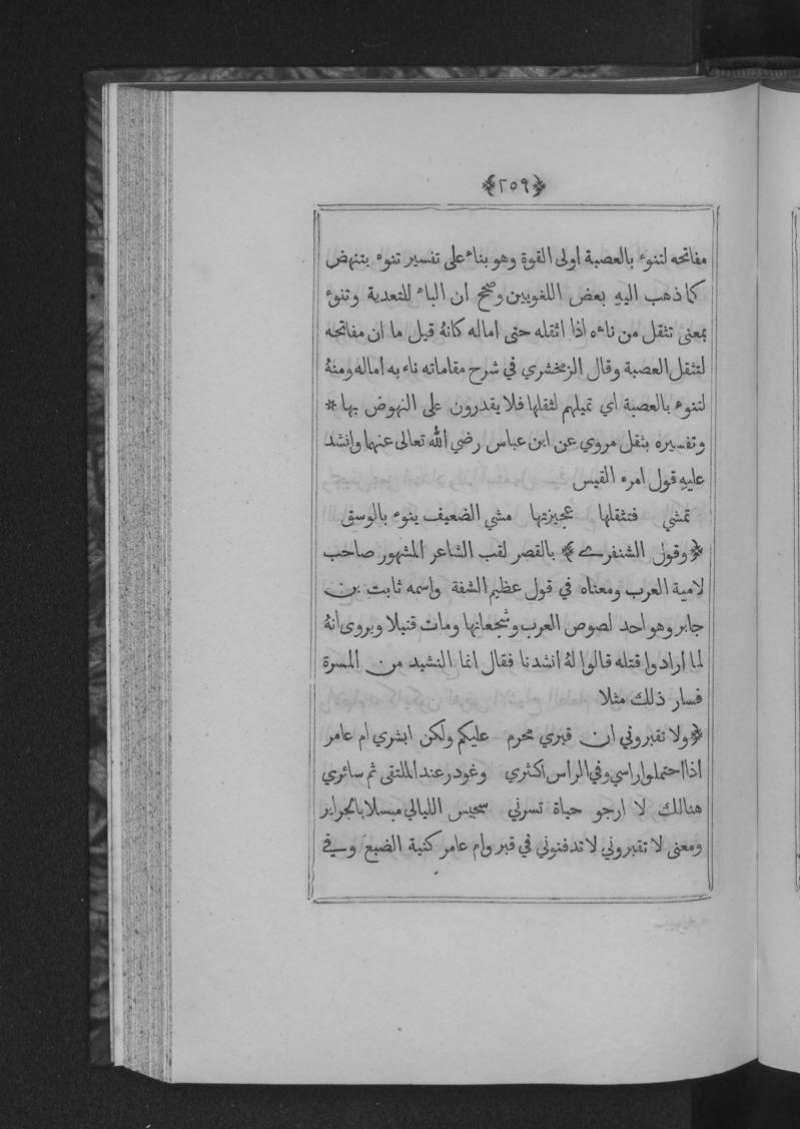 ﴿٢٥٩﴾
مفاتحه لتنوء بالعصبة اولى القوة وهو بناء على تفسير تنوء بتنهض
كما ذهب اليهِ بعض اللغويين وصحح ان الباء للتعدية وتنوء
بمعنى تثقل من ناءه اذا اثقله حتى اماله كانهُ قيل ما ان مفاتحه
لتثقل العصبة وقال الزمخشري في شرح مقاماته ناء به اماله ومنهُ
لتنوء بالعصبة اي تميلهم لثقلها فلا يقدرون على النهوض بها *
وتفسيره بثقل مروي عن ابن عباس رضي الله تعالى عنهما وانشد
عليهِ قول امرء القيس
تمشي فتثقلها عجيزتها مشي الضعيف ينوء بالوسق
﴿وقول الشنفرے﴾ بالقصر لقب الشاعر المشهور صاحب
لامية العرب ومعناه في قول عظيم الشفة واسمه ثابت بن
جابر وهو احد لصوص العرب وشجعانها ومات قتيلا ويروى انهُ
لما ارادوا قتله قالوا لهُ انشدنا فقال انما النشيد من المسرة
فسار ذلك مثلا
﴿ولا تقبروني ان قبري محرم عليكم ولكن ابشري ام عامر
اذا احتملوا راسي وفي الراس اكثري وغودر عند الملتقى ثم سائري
هنالك لا ارجو حياة تسرني سجيس الليالي مبسلا بالجراير
ومعنى لا تقبروني لا تدفنوني في قبر وام عامر كنية الضبع وفي